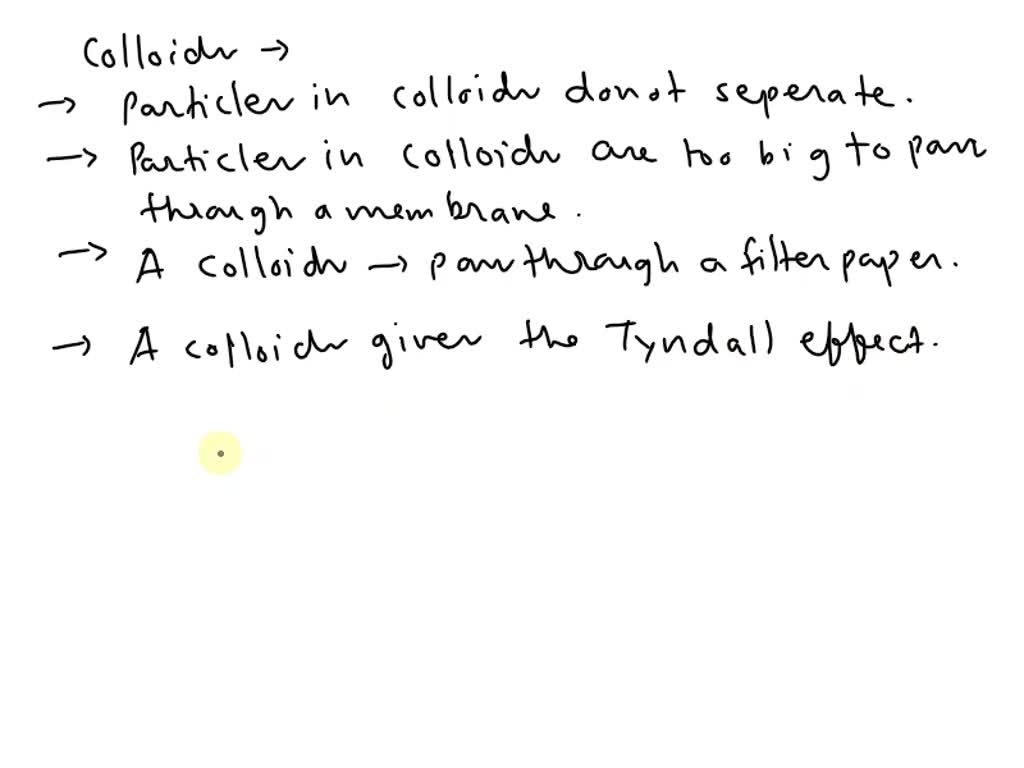 Colloids →
→ Particles in colloids donot seperate.
→ Particles in colloids are too big to pass
through a membrane.
→ A colloids → pass through a filter paper.
→ A colloids gives the Tyndall effect.